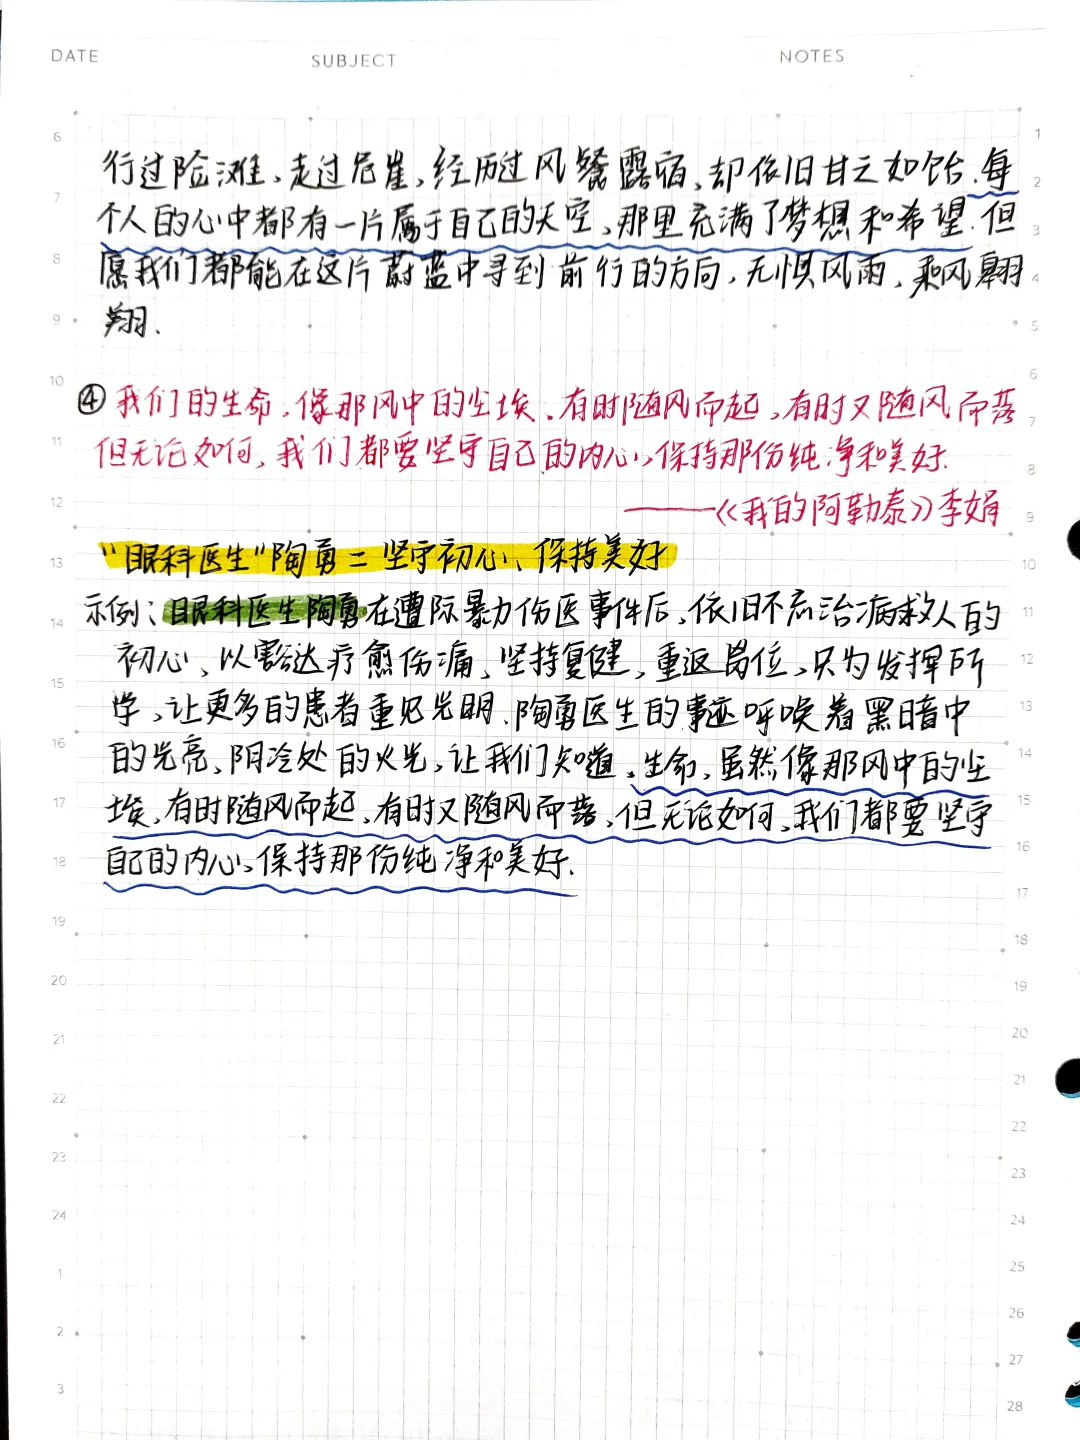 DATE SUBJECT NOTES
行过险滩、走过危崖,经历过风餐露宿,却依旧甘之如饴.每
个人的心中都有一片属于自己的天空,那里充满了梦想和希望.但
愿我们都能在这片蔚蓝中寻到前行的方向,无惧风雨,乘风翱
翔.
④我们的生命,像那风中的尘埃.有时随风而起,有时又随风而落
但无论如何,我们都要坚守自己的内心,保持那份纯净和美好.
——《我的阿勒泰》李娟
"眼科医生"陶勇=坚守初心、保持美好
示例:眼科医生陶勇在遭际暴力伤医事件后,依旧不忘治病救人的
初心,以豁达疗愈伤痛,坚持复健,重返岗位,只为发挥所
学,让更多的患者重见光明.陶勇医生的事迹呼唤着黑暗中
的光亮,阴冷处的火光,让我们知道,生命,虽然像那风中的尘
埃,有时随风而起,有时又随风而落,但无论如何,我们都要坚守
自己的内心,保持那份纯净和美好.